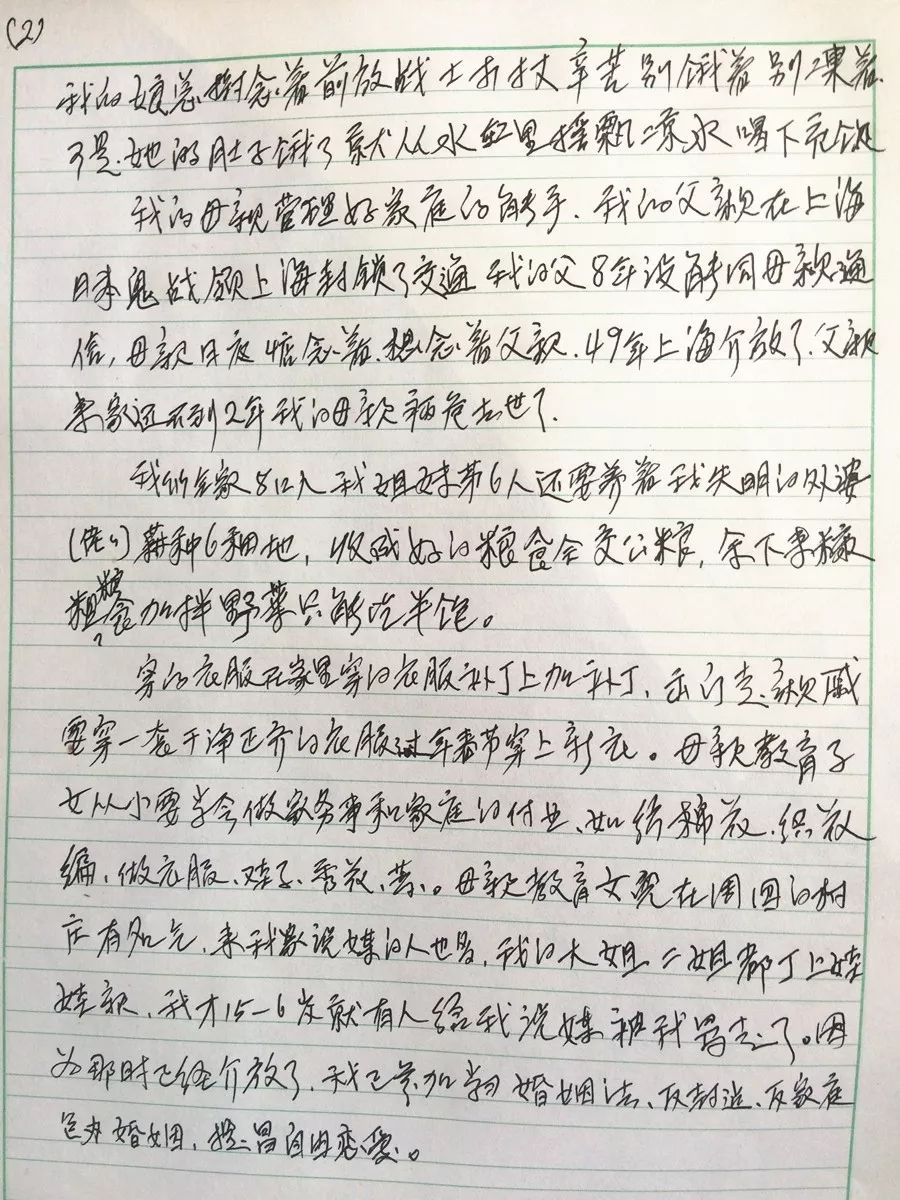 (2)
我的娘总掛念着前放战士打扙辛苦别饿着别凍着.
可是.她的肚子饿了就从水缸里摇飘凉水喝下充饥
我的母亲管理好家庭的能手.我的父亲在上海
日本鬼战领上海封锁了交通 我的父8年没能同母亲通
信,母亲日夜惦念着.想念着父亲.49年上海介放了.父亲
来家还不到2年我的母亲病危去世了.
我们全家8口人 我姐妹弟6人还要养着我失明的外婆
(佬々)耕种6亩地,收成好的粮食全交公粮,余下
粗粮食加拌野菜只能吃半饱。
穿的衣服在家里穿的衣服补丁上加补丁,出门走.亲戚
要穿一套干净正齐的衣服过年春节穿上新衣。母亲教育子
女从小要学会做家务事和家庭的付业、如纺棉花.织花
编、做衣服、鞋子、秀花、等。母亲教育女儿在周围的村
庄有名气.来我家说媒的人也多,我的大姐二姐都丁上娃
娃亲、我才15-6岁就有人给我说媒被我骂走了。因
为那时已经介放了.我已参加学习婚姻法、反封建、反家庭
包办婚姻,提昌自由恋爱。